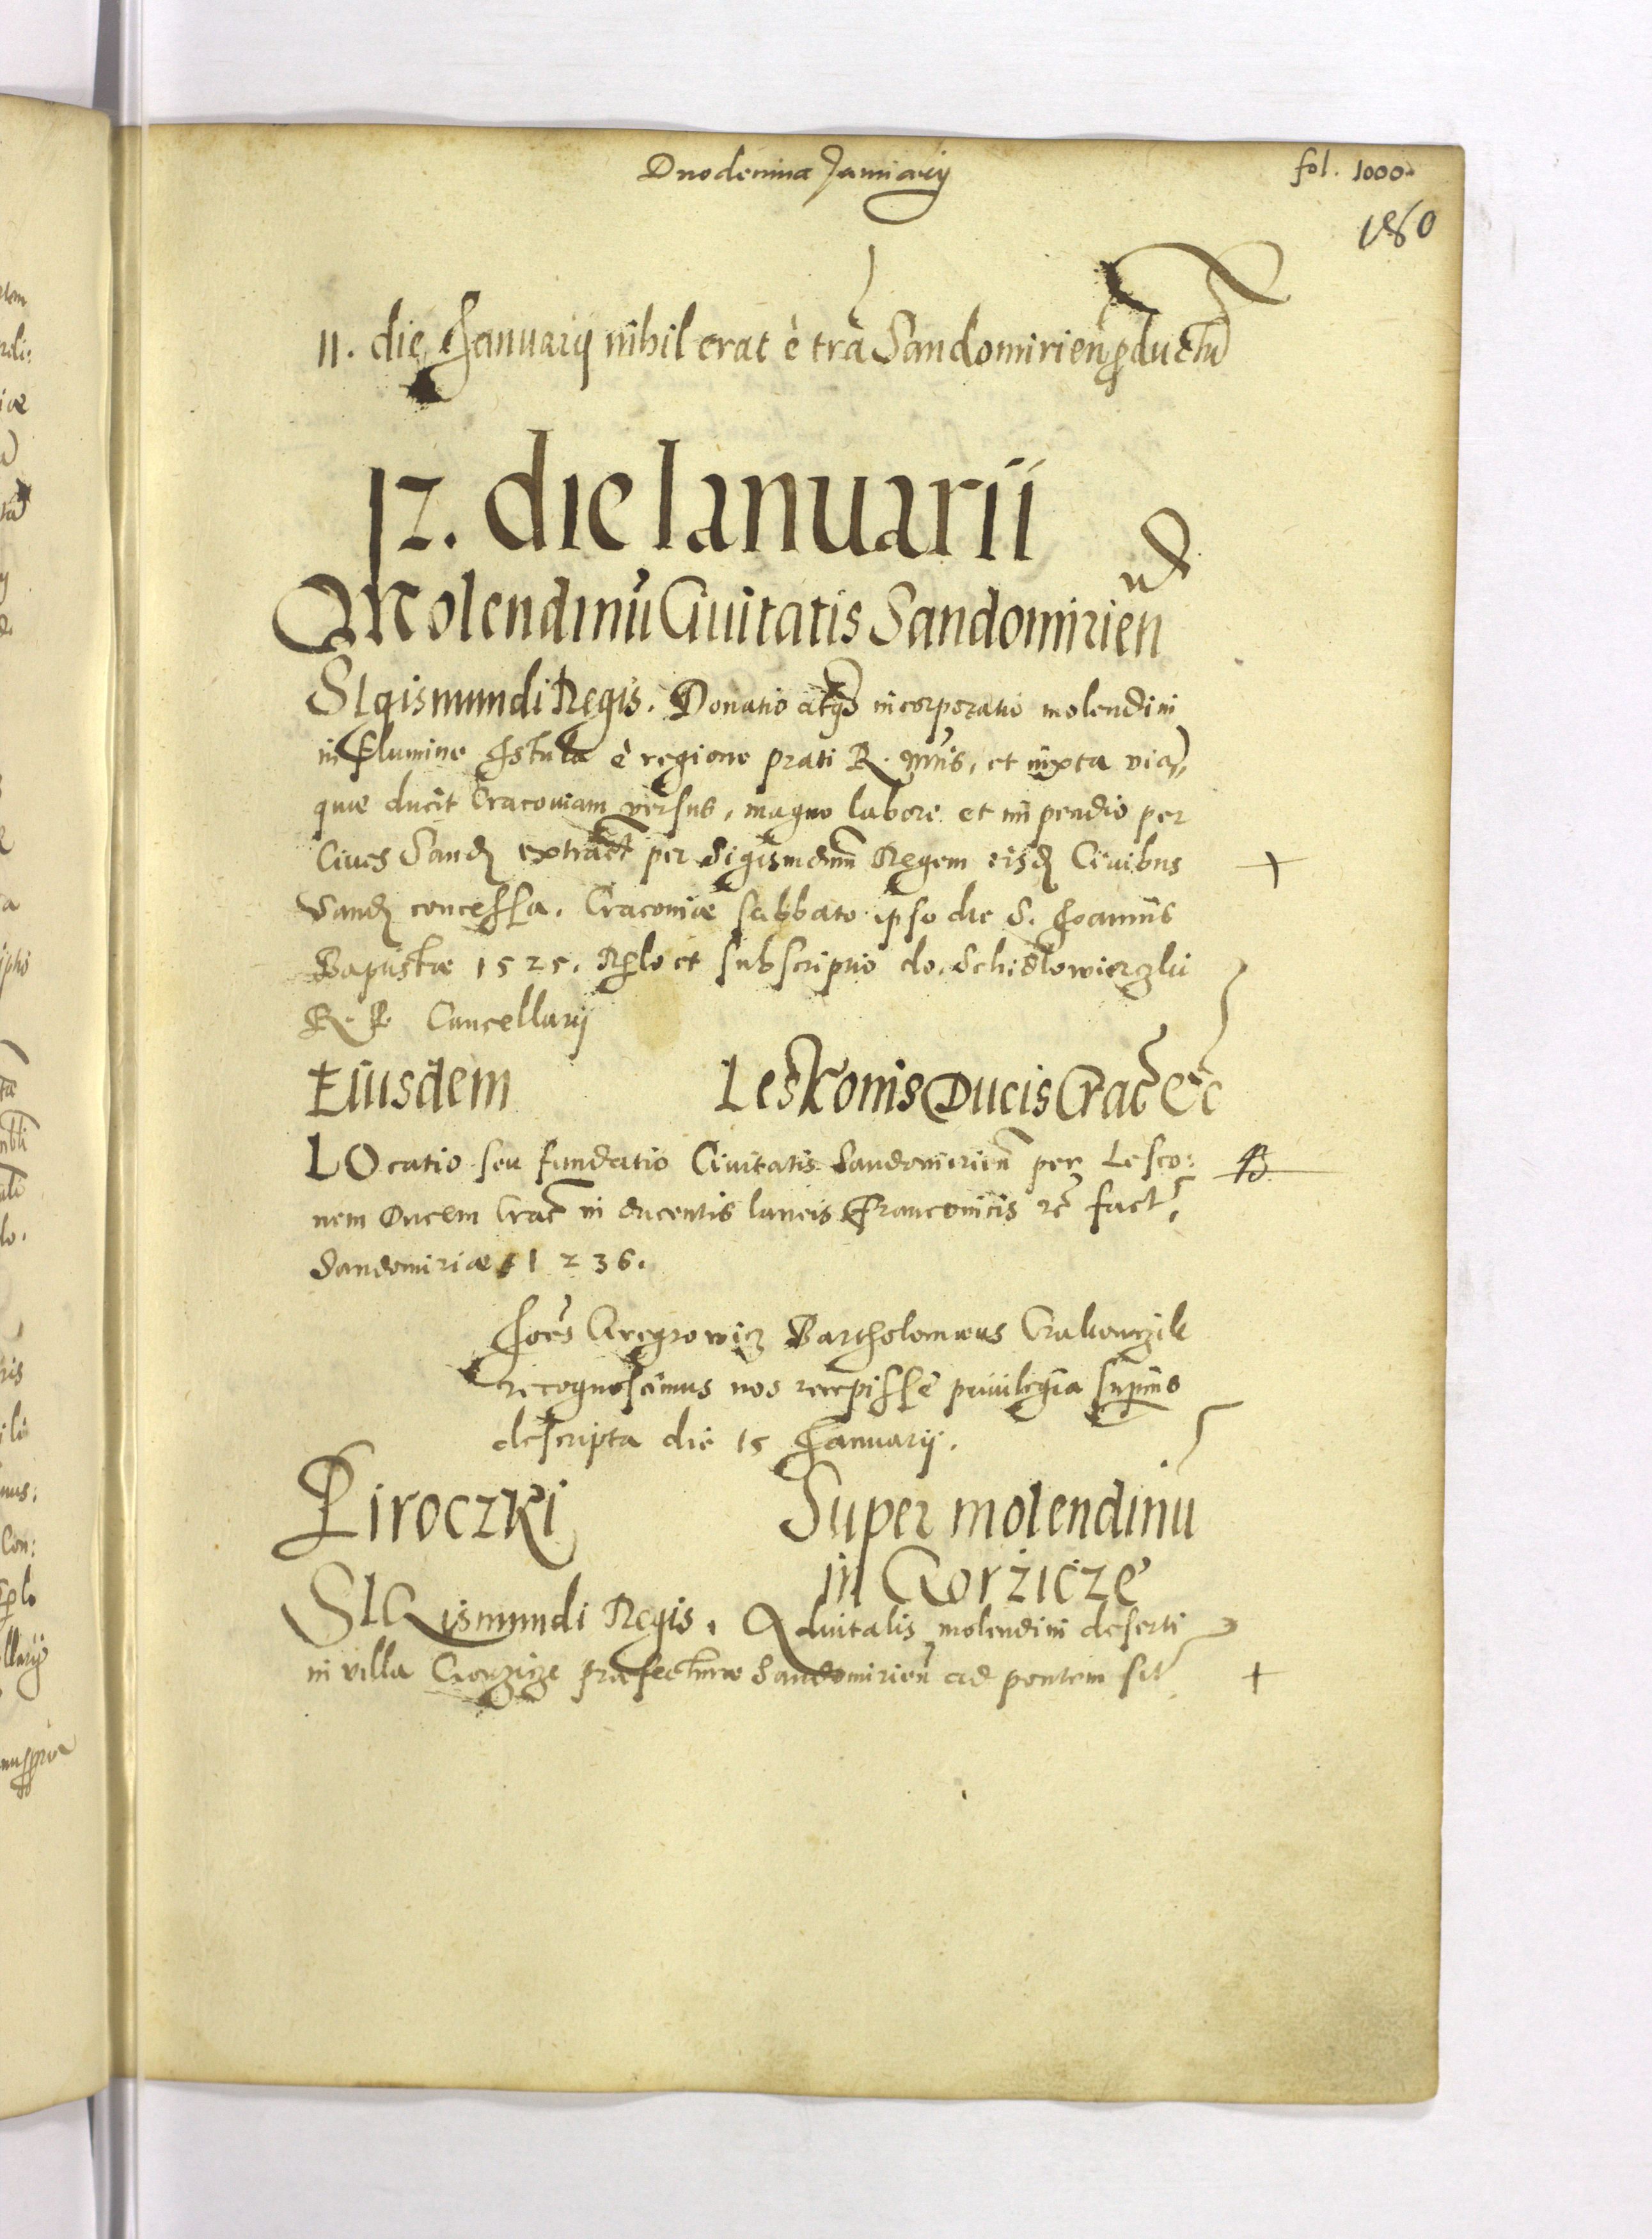 Duodecima Januarij
fol. 1000.
180
11. die Januarij nihil erat è tra Sandomirien productũ
12. die Ianuarii
Molendinũ Ciuitatis Sandomirien
SIgismundi Regis. Donatio atqȝ incorporatio molendini
in flumine Istula è regione prati R. Mtis, et iuxta viã,
quæ ducit Cracouiam versus, magno labore et impendio per
Ciues Sand extract per Sigismdum Regem eisd Ciuibus
Sand concessa. Cracouiæ sabbato ipso die S. Joannis
Baptistæ 1525. Relo et subscriptio do. Schidlowierzki
R. P. Cancellarij
Eiusdem Leskonis Ducis Crac Etc
LOcatio seu fundatio Ciuitatis Sandomirien per Lesco:
nem Ducem Crac in ducentis laneis Franconicis etc fact,
Sandomiriæ 1236.
Joes Gregrowicz Bartholomæus Crakowczik
recognoscimus nos recepisse priuilegia superius
descripta die 15 Januarij.
Piroczki Super molendinũ
in Gorzicze
SIGismundi Regis. Aduitalis molendini deserti
in villa Gorzize præfecturæ Sandomirien ad pontem sit